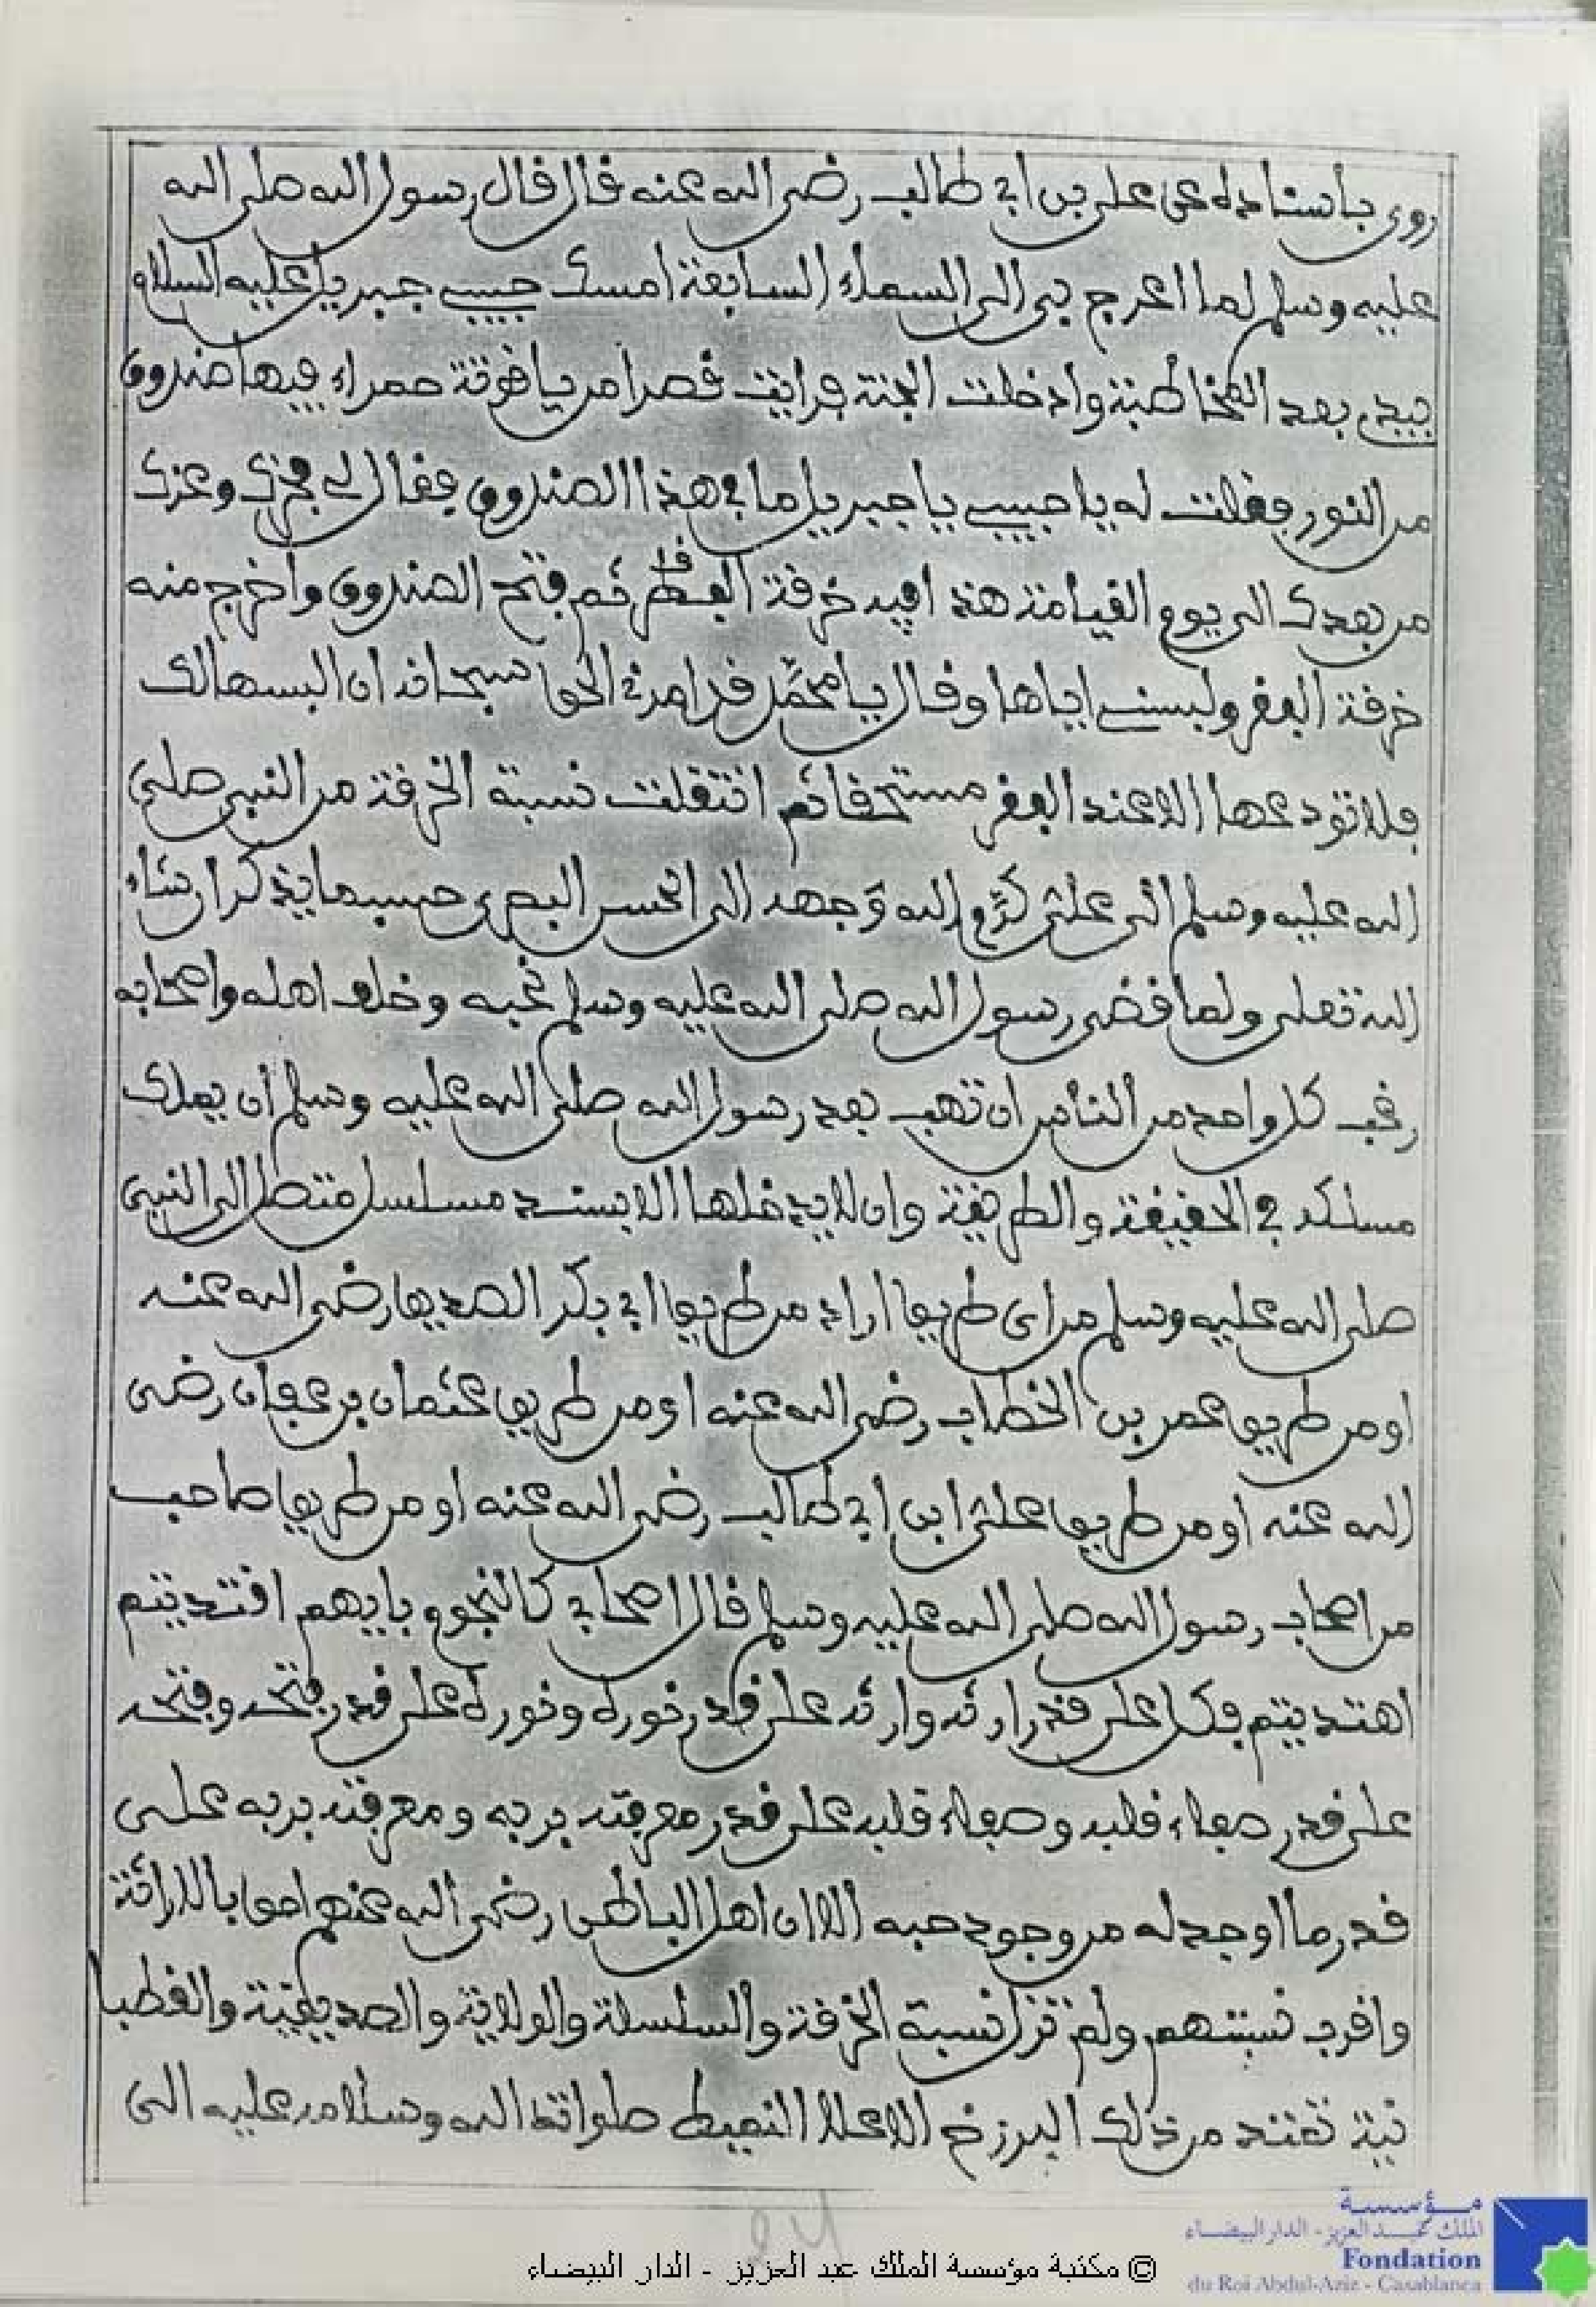 روى بأسناده عن على بن ابي طالب رضى الله عنه قال قال رسول الله صلى الله
عليه وسلم لما اعرج بى الى السماء السابعة امسك حبيبي جبريل عليه السلام
بيدي بعد المخاطبة وادخلت الجنة فرايت قصرا من ياقوتة حمراء فيها صندوق
من النور فقلت له يا حبيبي يا جبريل ما في هذا الصندوق فقال لي فخرك وعزك
من بعدك الى يوم القيامة هذه فيه خرقة الفقر ثم فتح الصندوق واخرج منه
خرقة الفقر ولبسني اياها وقال يا محمد قد امرني الحق سبحانه ان البسها لك
فلا تودعها الا عند الفقر مستحقا ثم انتقلت نسبة الخرقة من النبي صلى
الله عليه وسلم الى على كرم الله وجهه الى الحسن البصرى حسبما يذكر ان شاء
الله تعلى ولما قضى رسول الله صلى الله عليه وسلم نحبه وخلف اهله واصحابه
رغب كل واحد من الناس ان بعد رسول الله صلى الله عليه وسلم ان
مسلكه في الحقيقة والطريقة وان لا يدخلها الا بسند مسلسل متصل الى النبي
صلى الله عليه وسلم من اى طريق اراد من طريق ابي بكر الصديق رضى الله عنه
او من طريق عمر بن الخطاب رضى الله عنه او من طريق عثمان بن عفان رضى
الله عنه او من طريق على ابن ابي طالب رضى الله عنه او من طريق صاحب
من اصحاب رسول الله صلى الله عليه وسلم قال اصحابي كالنجوم بايهم اقتديتم
اهتديتم فكل على قدر ارثه وارثه على قدر نوره ونوره على قدر فتحه وفتحه
على قدر صفاء قلبه وصفاء قلبه على قدر معرفته بربه ومعرفته بربه على
قدر ما اوجد له من وجود حبه الا ان اهل الباطن رضى الله عنهم احق بالارثة
واقرب نسبتهم ولم تزل نسبة الخرقة والسلسلة والولاية والصديقية والقطبا
نية تمتد من ذلك البرزخ الاعلا صلوات الله وسلامه عليه الى
© مكتبة مؤسسة الملك عبد العزيز - الدار البيضاء
مؤسسة
الملك عبد العزيز - الدار البيضاء
Fondation
du Roi Abdul-Aziz - Casablanca